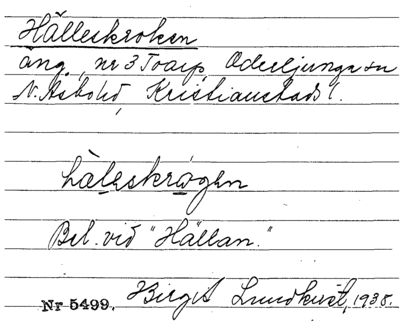 Hålleskroken
äng, nr 3 Toarp, Oderljunga sn
N. Åsbo hd, Kristianstads l.
hàleskrågen
Bel. vid "Hållan."
Nr 5499. Birgit Lundkvist, 1935.